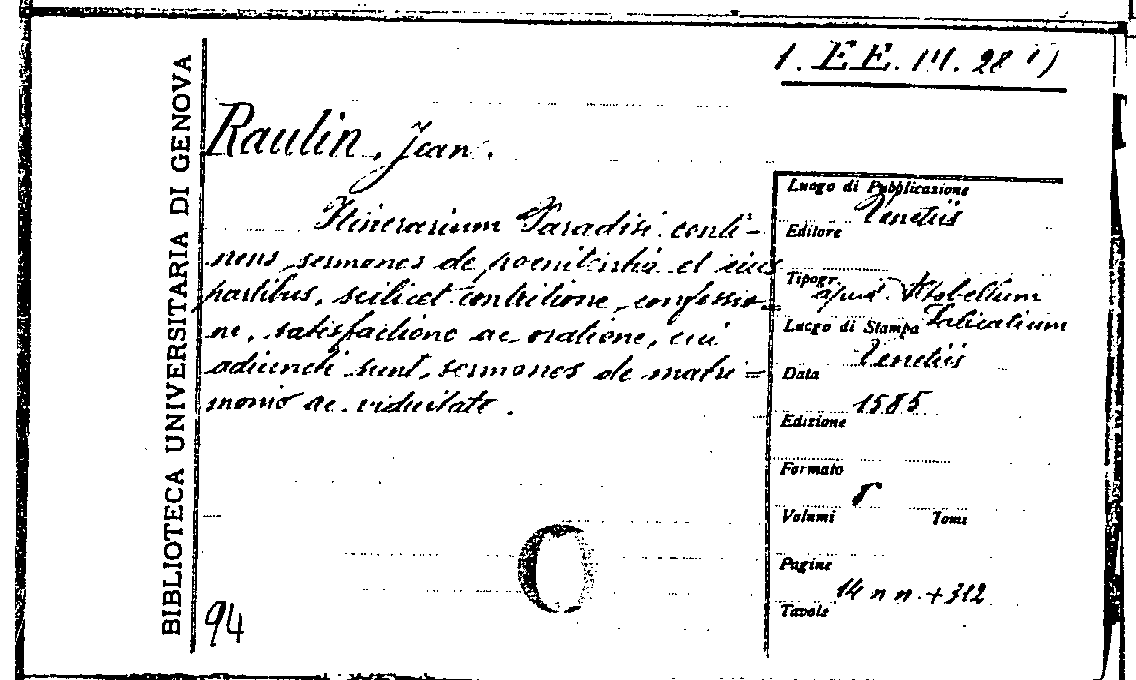 1. EE. III. 28 1)
BIBLIOTECA UNIVERSITARIA DI GENOVA
Raulin, Jean.
Itinerarium Paradisi conti-
nens sermones de poenitentia et eius
partibus, scilicet contritione, confessio=
ne, satisfactione ac oratione, cui
adiuncti sunt, sermones de matri=
monio ac viduitate.
94
Luogo di Pubblicazione
Venetiis
Editore
Tipogr.
apud
Luogo di Stampa
Venetiis
Data
1585
Edizione
Formato
8
Volumi Tomi
Pagine
14 n n. + 312
Tavole